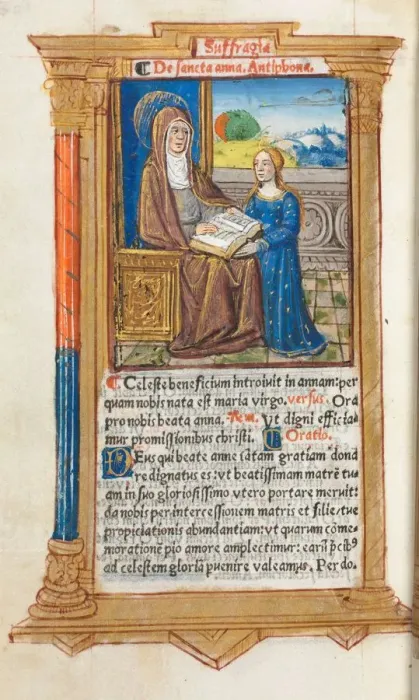 Suffragia
De sancta anna. Antiphona.
Celeste beneficium introiuit in annam: per
quam nobis nata est maria virgo. versus. Ora
pro nobis beata anna. Rem. Ut digni efficia⸗
mur promissionibus christi. Oratio.
DEus qui beate anne tātam gratiam dona
re dignatus es: vt beatissimam matrē tu⸗
am in suo gloriosissimo vtero portare meruit:
da nobis per intercessionem matris et filie, tue
propiciationis abundantiam: vt quarum cōme⸗
morationē pio amore amplectimur: earū p̄cibꝰ
ad celestem gloriā puenire valeamus. Per do.